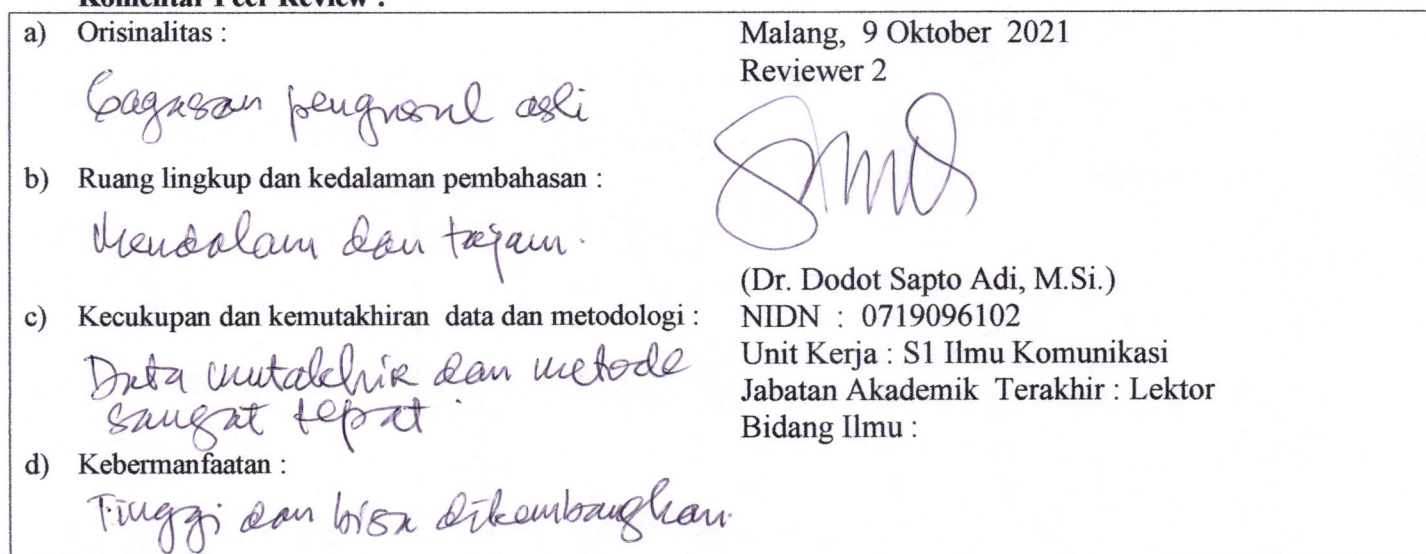 Komentar Peer Review :
a) Orisinalitas :
Gagasan pengusul asli
b) Ruang lingkup dan kedalaman pembahasan :
Mendalam dan tajam.
c) Kecukupan dan kemutakhiran data dan metodologi :
Data mutakhir dan metode
sangat tepat
d) Kebermanfaatan :
Tinggi dan bisa dikembangkan.
Malang, 9 Oktober 2021
Reviewer 2
(Dr. Dodot Sapto Adi, M.Si.)
NIDN : 0719096102
Unit Kerja : S1 Ilmu Komunikasi
Jabatan Akademik Terakhir : Lektor
Bidang Ilmu :